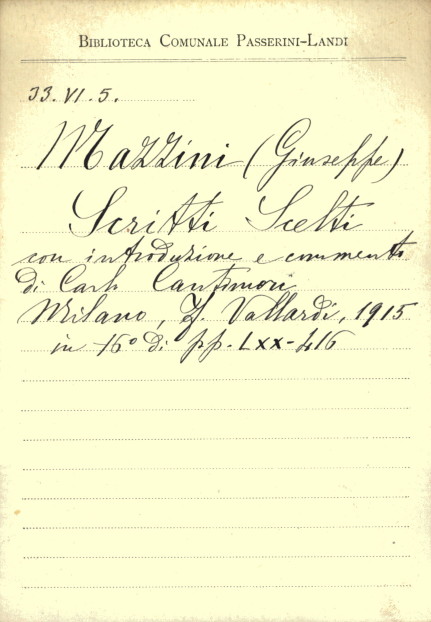 BIBLIOTECA COMUNALE PASSERINI-LANDI
33. VI. 5.
Mazzini (Giuseppe)
Scritti Scelti
con introduzione e commento
di Carlo Cantimori
Milano, F. Vallardi, 1915
in 16° di pp. LXX-416